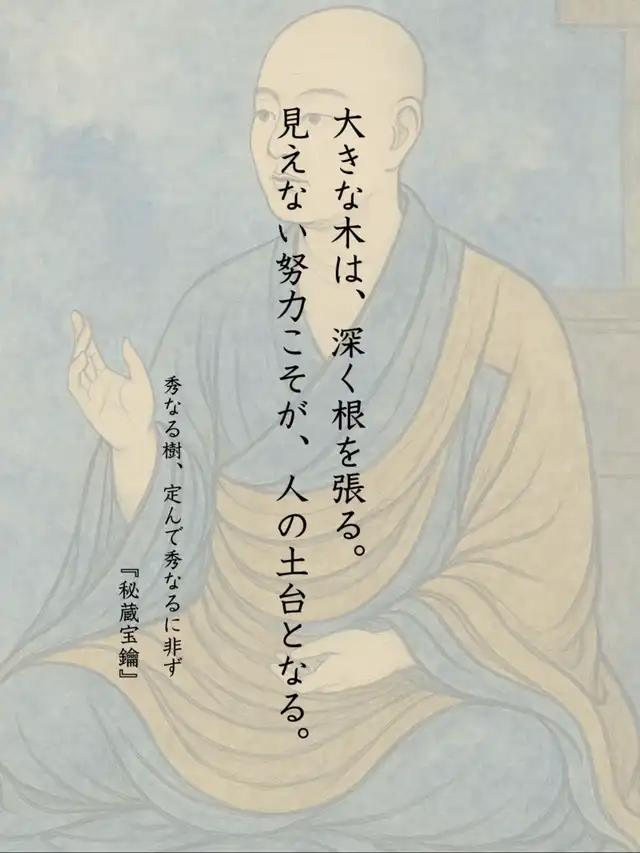 大きな木は、深く根を張る。
見えない努力こそが、人の土台となる。
秀なる樹、定んで秀なるに非ず
『秘蔵宝鑰』